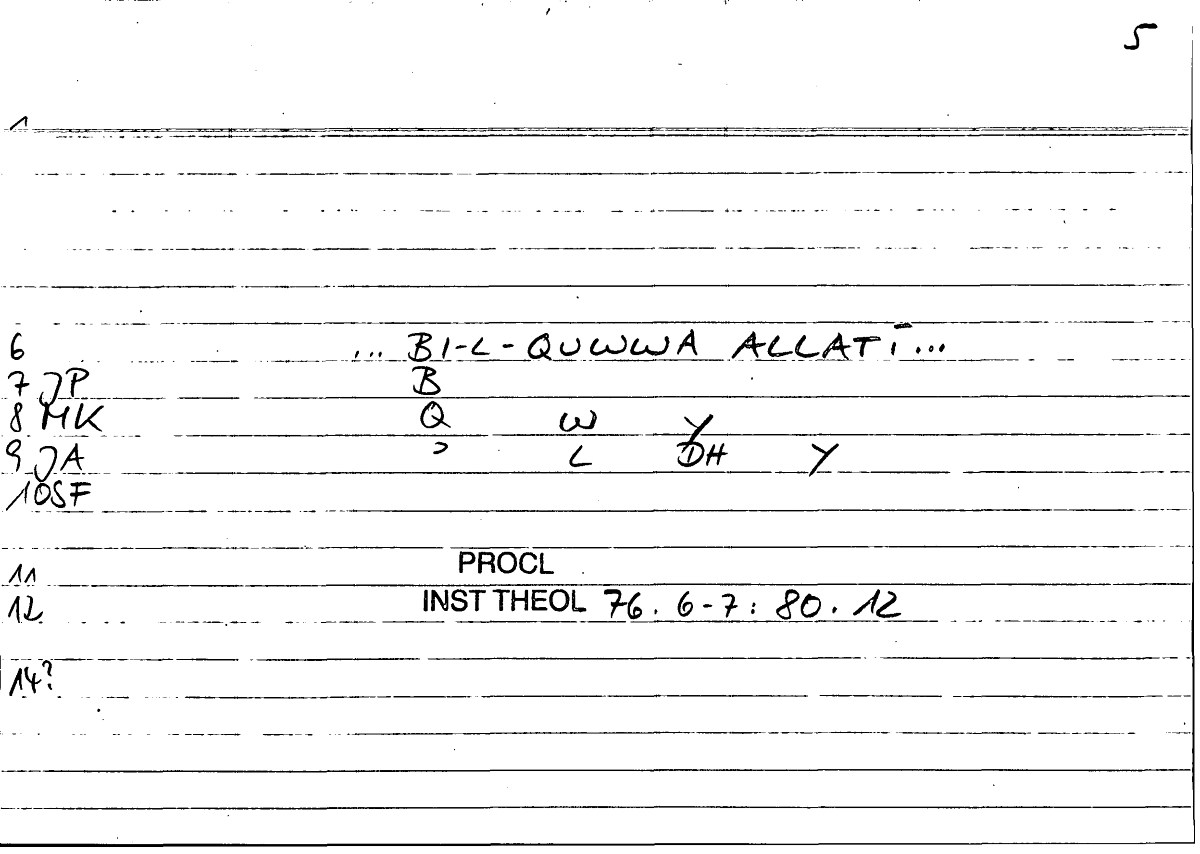 5
1
6 ... BI-L-QUWWA ALLATĪ...
7 JP B
8 MK Q W Y
9 JA ʾ L DH Y
10 SF
11 PROCL
12 INST THEOL 76. 6-7: 80. 12
14?